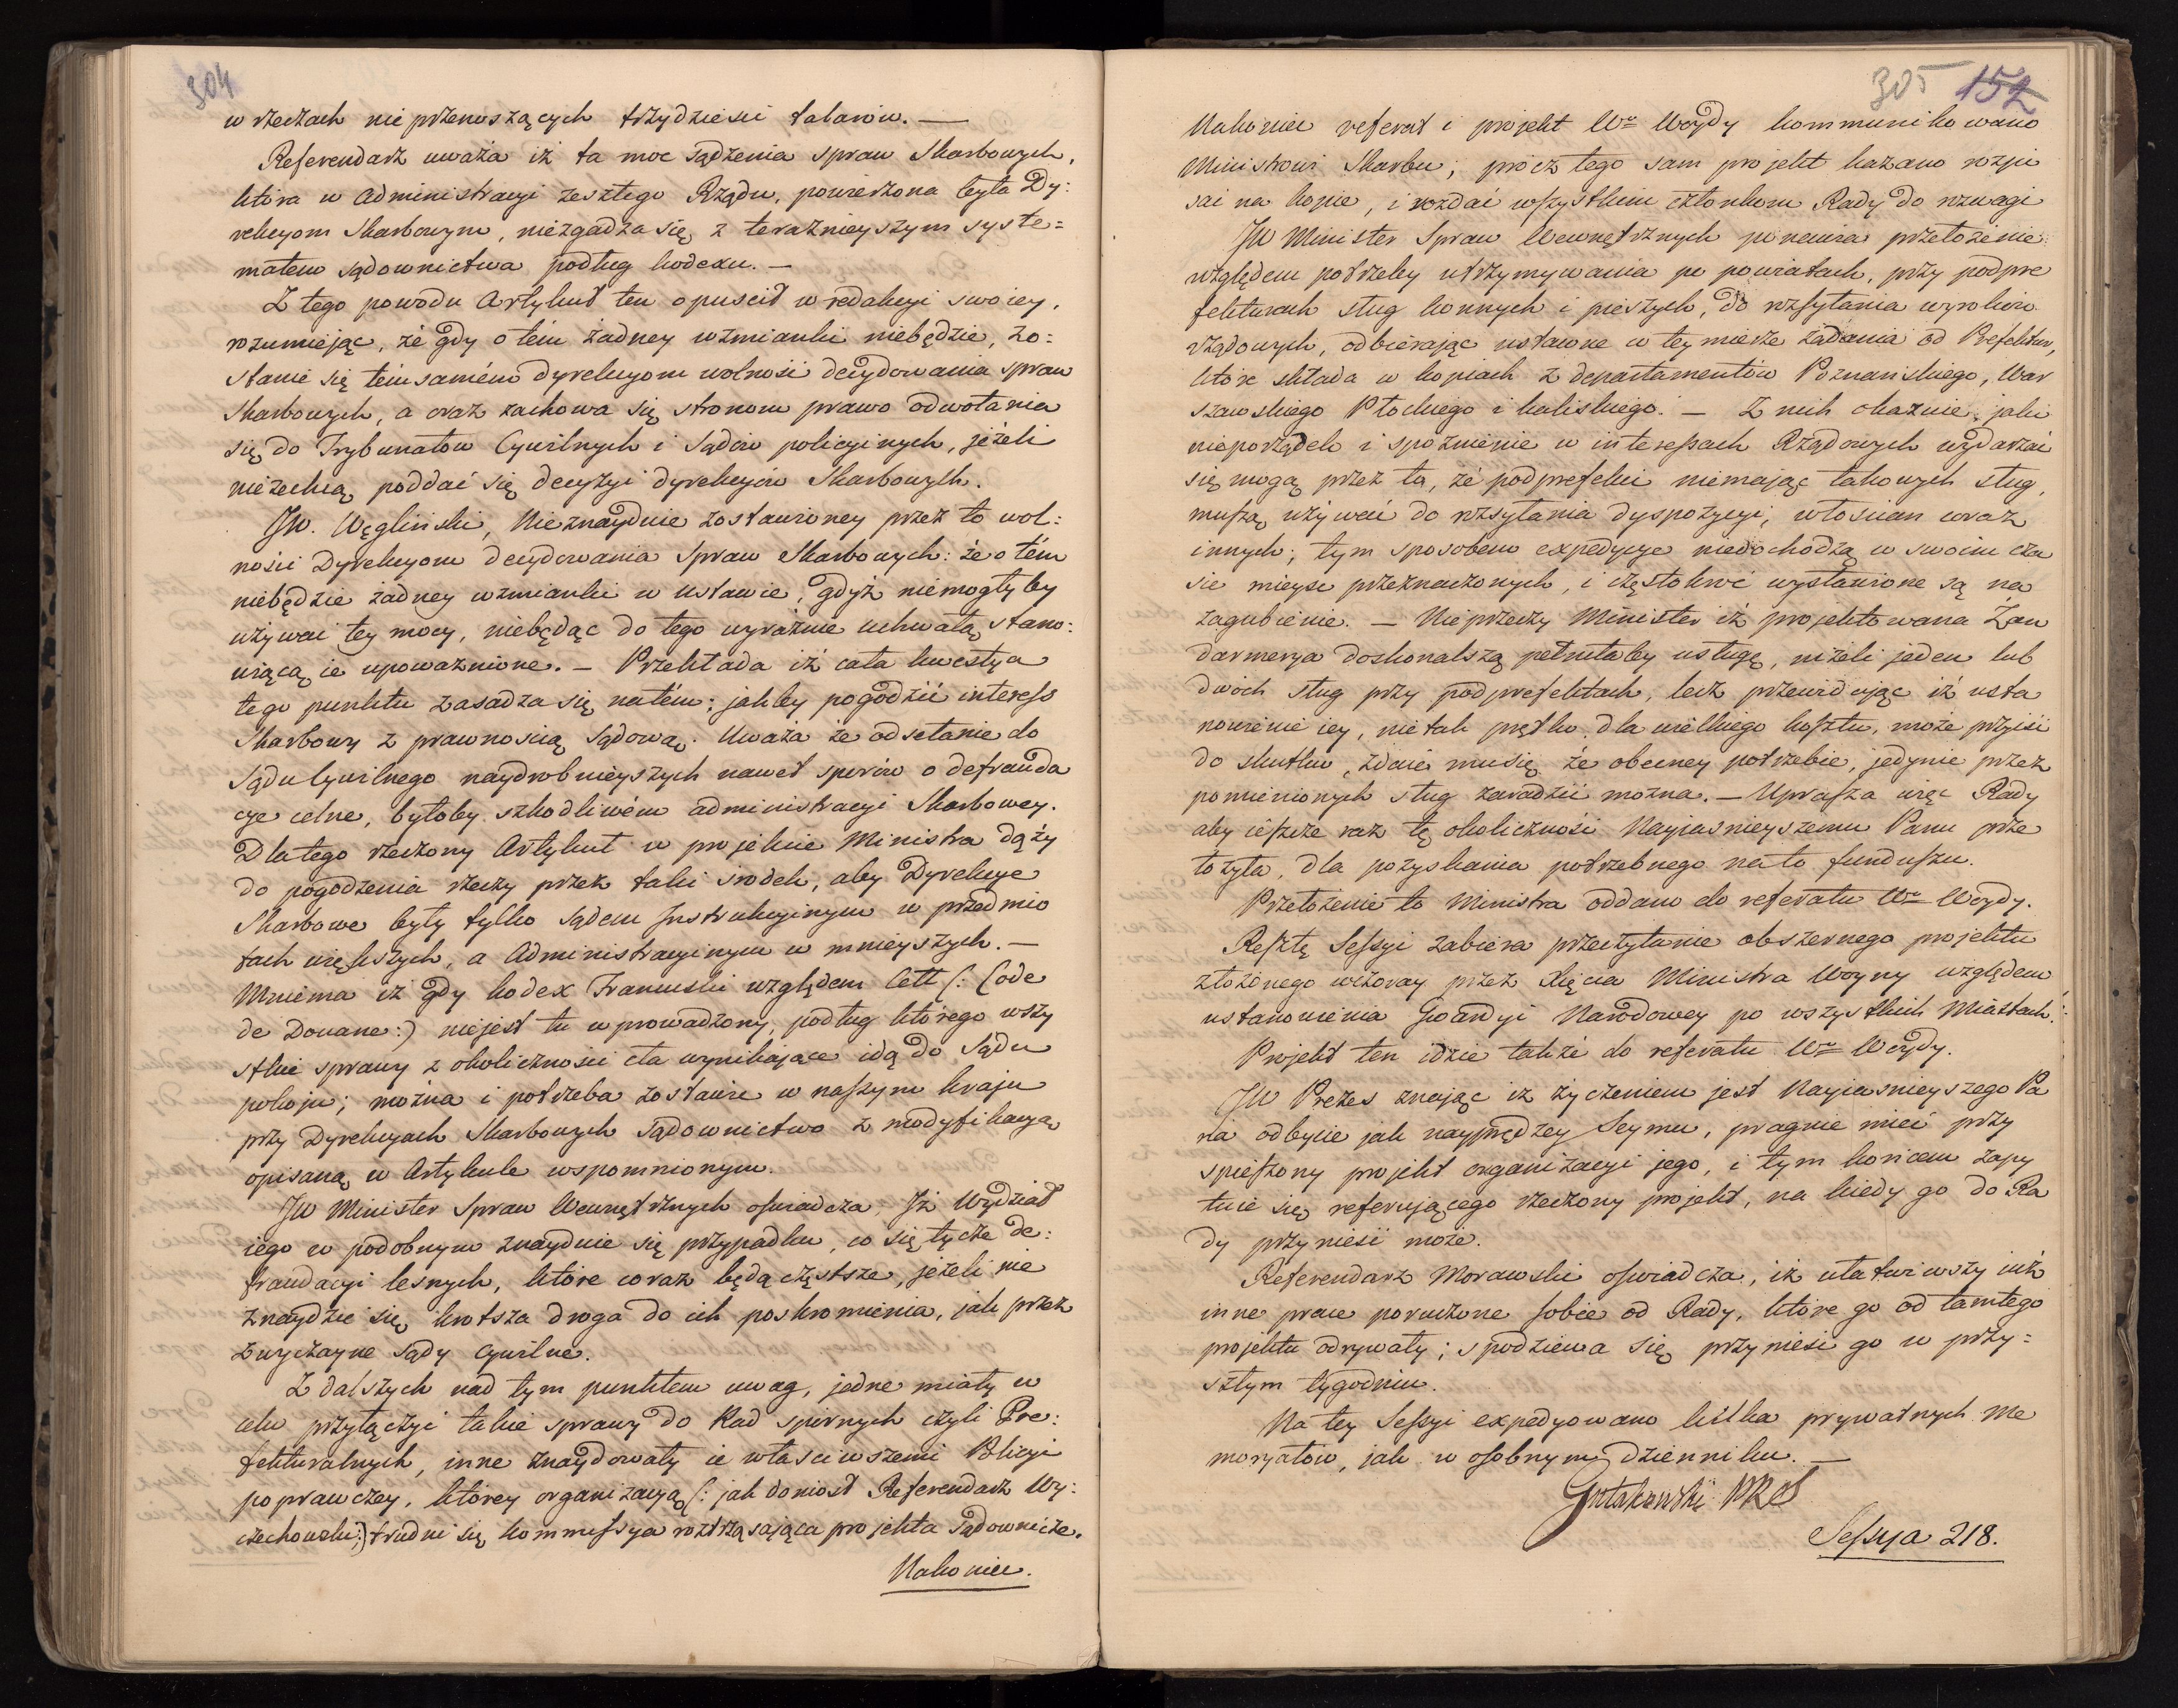 304
w rzeczach nieprzenoszących trzydziesci talarów. —
Referendarz uważa iż ta moc sądzenia spraw Skarbowych,
która w Administracyi zeszłego Rządu, powierzona była Dy:
rekcyom Skarbowym, niezgadza się z teraźnieyszym syste=
matem sądownictwa podług kodexu. —
Z tego powodu Artykuł ten opuscił w redakcyi swoiey,
rozumiejąc, że gdy o tém żadney wzmianki niebędzie, zo:
stanie się témsamém dyrekcyom wolność decydowania spraw
Skarbowych, a oraz zachowa się stronom prawo odwołania
się do Trybunałów Cywilnych i Sądów policyinych, jeżeli
niezechcą poddać się decyzyi dyrekcyów Skarbowych.
JW. Węgliński, Nieznayduie zostawioney przez to wol:
ności Dyrekcyom decydowania Spraw Skarbowych: że o tém
niebędzie żadney wzmianki w ustawie, gdyż niemogłyby
używać tey mocy, niebędąc do tego wyraźnie uchwałą stano:
wiącą ie upoważnione. — Przekłada iż cała kwestya
tego punktu zasadza się natém; jakby pogodzić interess
Skarbowy z prawnoscią Sądową. Uważa że odsełanie do
Sądu Cywilnego naydrobnieyszych nawet sporów o defrauda
cye celne, byłoby szkodliwém administracyi Skarbowey.
Dlatego rzeczony Artykuł w projekcie Ministra dąży
do pogodzenia rzeczy przez taki srodek, aby Dyrekcye
Skarbowe były tylko Sądem Instrukcyinym w przedmio
tach większych, a Administracyinym w mnieyszych. —
Mniema iż gdy kodex Francuski względem Cełł (: Code
de Douane :) niejest tu wprowadzony, podług którego wszy
stkie sprawy z okoliczności cła wynikające idą do Sądu
pokoju; można i potrzeba zostawić w naszym kraju
przy Dyrekcyach Skarbowych Sądownictwo z modyfikacyą
opisaną w Artykule wspomnionym.
JW Minister Spraw Wewnętrznych oswiadcza, Iż Wydział
iego w podobnym znayduie się przypadku, co się tycze de:
fraudacyi lesnych, które coraz będą częstsze, jeżeli nie
znaydzie się krotsza droga do ich poskromienia, jak przez
zwyczayne Sądy Cywilne.
Z dalszych nad tym punktem uwag, jedne miały w
celu przyłączyć takie sprawy do Rad spornych czyli Pre:
fekturalnych, inne znaydowały ie własciwszemi Policyi
poprawczey, którey organizacyą (: jak doniosł Referendarz Wy:
czechowski :) trudni się kommissya roztrząsająca projekta Sądownicze.
Nakoniec.
305 152
Nakoniec referat i projekt Wo Woydy kommunikowano
Ministrowi Skarbu; prócz tego sam projekt kazano rozpi
sać na kopie, i rozdać wszystkim członkom Rady do rozwagi
JW Minister Spraw Wewnętrznych ponawia przełożenie
względem potrzeby utrzymywania po powiatach, przy podpre
fekturach sług konnych i pieszych, do rozsyłania wyroków
rządowych, odbierając ustawne w tey mierze żądania od Prefektur,
które składa w kopiach z departamentów Poznańskiego, War
szawskiego Płockiego i kaliskiego. — Z nich okazuie jaki
nieporządek i spóźnienie w interessach Rządowych wydarzać
się mogą przez to, że podprefekci niemając takowych sług,
muszą używać do rozsyłania dyspozycyi, włoscian oraz
innych; tym sposobem expedycye niedochodzą w swoim cza
sie mieysc przeznaczonych, i częstokroć wystawione są na
zagubienie. — Nieprzeczy Minister iż projektowana Żan
darmerya doskonalszą pełniłaby usługę, niżeli jeden lub
dwóch sług przy podprefektach, lecz przewidując iż usta
nowienie iey, nie tak prędko, dla wielkiego kosztu, może przyiść
do skutku, zdaie musię że obecney potrzebie, jedynie przez
pomienionych sług zaradzić można. — Uprasza więc Rady
aby ieszcze raz tę okoliczność Nayiasnieyszemu Panu prze
łożyła, dla pozyskania potrzebnego na to funduszu.
Przełożenie to Ministra oddano do referatu Wo Woydy.
Resztę Sessyi zabiera przeczytanie obszernego projektu
złożonego wczoray przez Xięcia Ministra Woyny względem
ustanowienia Gwardyi Narodowey po wszystkich Miastach.
Projekt ten idzie także do referatu Wo Woydy.
JW Prezes znając iż życzeniem jest Nayiasnieyszego Pa
na odbycie jak nayprędzey Seymu, pragnie mieć przy
spieszony projekt organizacyi jego, i tym końcem zapy
tuie się referującego rzeczony projekt, na kiedy go do Ra
dy przynieść może.
Referendarz Morawski oswiadcza, iż ułatwiwszy iuż
inne prace poruczone sobie od Rady, które go od tamtego
projektu odrywały; spodziewa się przynieść go w przy=
szłym tygodniu.
Na tey Sessyi expedyowano kilka prywatnych me
moryałów, jak w osobnym dzienniku. —
Gutakowski PRS
Sessya 218.